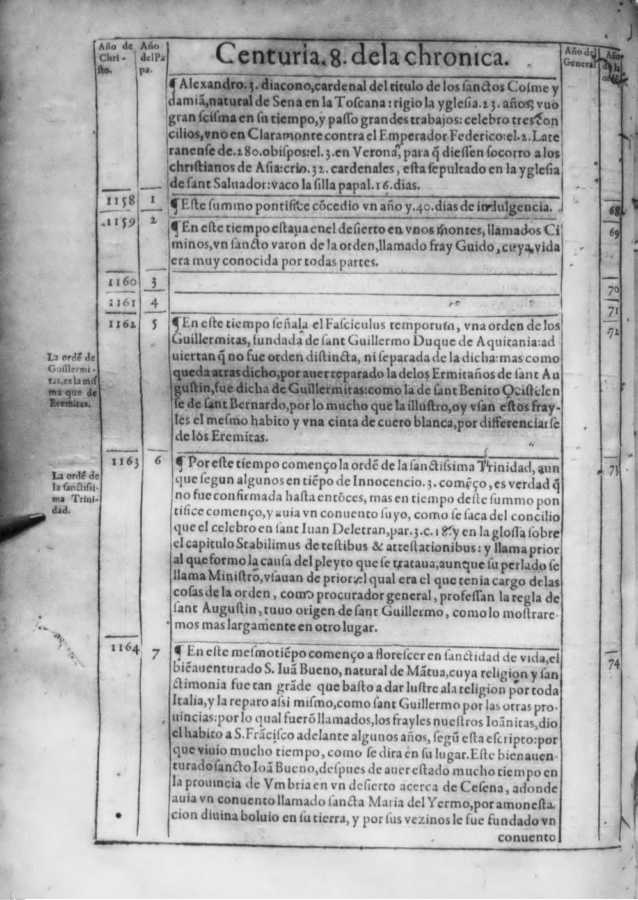 Año de Chri-
sto.
Año
del Pa
pa.
Centuria.8. dela chronica.
Año del
General
Año
de la
¶ Alexandro.3. diacono,cardenal del titulo de los sanctos Cosme y
damiã,natural de Sena en la Toscana:rigio la yglesia.23.años,vuo
gran scisma en su tiempo,y passo grandes trabajos:celebro tres con
cilios,vno en Claramonte contra el Emperador Federico:el.2.Late
ranense de.280.obispos:el.3.en Verona, para q̃ diessen socorro a los
christianos de Asia:crio.32. cardenales, esta sepultado en la yglesia
de sant Saluador:vaco la silla papal.16.dias.
1158 1 ¶Este summo pontifice cõcedio vn año y.40.dias de indulgencia. 68
1159 2 ¶En este tiempo estaua enel desierto en vnos montes, llamados Ci 69
minos,vn sancto varon de la orden,llamado fray Guido,cuya vida
era muy conocida por todas partes.
1160 3 70
1161 4 71
1162 5 ¶En este tiempo señala el Fasciculus temporum, vna orden de los 72
Guillermitas, fundada de sant Guillermo Duque de Aquitania:ad
uiertan q̃ no fue orden distincta, ni separada de la dicha:mas como
queda atras dicho,por auer reparado la delos Ermitaños de sant Au
gustin,fue dicha de Guillermitas:como la de sant Benito Ocistelen
se de sant Bernardo,por lo mucho que la illustro,oy vsan estos fray-
les el mesmo habito y vna cinta de cuero blanca,por differenciarse
de los Eremitas.
La ordẽ de
Guillermi-
tas,es la mis
ma que de
Eremitas.
1163 6 ¶ Por este tiempo començo la ordẽ de la sanctissima Trinidad, aun 73
que segun algunos en tiẽpo de Innocencio.3. comẽço,es verdad q̃
no fue confirmada hasta entõces, mas en tiempo deste summo pon
tifice començo,y auia vn conuento suyo, como se saca del concilio
que el celebro en sant Iuan Deletran,par.3.c.18.y en la glossa sobre
el capitulo Stabilimus de testibus & attestationibus:y llama prior
al que formo la causa del pleyto que se trataua,aunque su perlado se
llama Ministro,vsauan de prior,el qual era el que tenia cargo de las
cosas de la orden, como procurador general, professan la regla de
sant Augustin, tuuo origen de sant Guillermo, como lo mostrare-
mos mas largamente en otro lugar.
La ordẽ de
la sanctissi-
ma Trini-
dad.
1164 7 ¶ En este mesmo tiẽpo començo a florescer en sanctidad de vida,el 74
biẽauenturado S. Iuã Bueno, natural de Mãtua,cuya religion y san
ctimonia fue tan grãde que basto a dar lustre ala religion por toda
Italia,y la reparo assi mismo,como sant Guillermo por las otras pro-
uincias:por lo qual fuerõ llamados,los frayles nuestros Ioãnitas,dio
el habito a S.Frãcisco adelante algunos años, segũ esta escripto:por
que viuio mucho tiempo, como se dira en su lugar.Este bienauen-
turado sancto Ioã Bueno,despues de auer estado mucho tiempo en
la prouincia de Vmbria en vn desierto acerca de Cesena, adonde
auia vn conuento llamado sancta Maria del Yermo,por amonesta-
cion diuina boluio en su tierra, y por sus vezinos le fue fundado vn
conuento